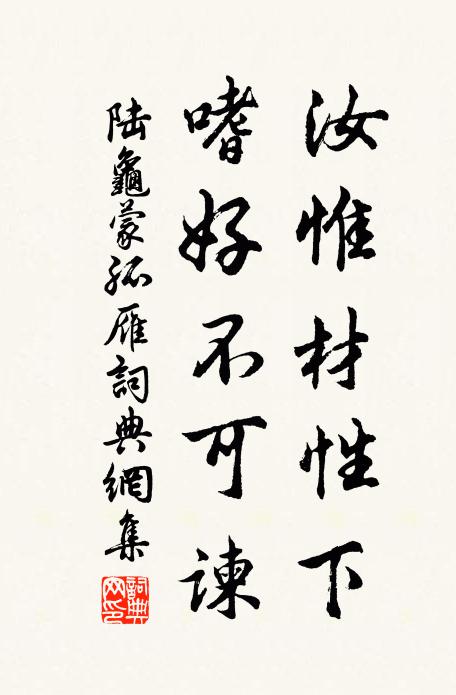 汝惟材性下
嗜好不可諫
陸龜蒙孤雁詞典網集
詞典網印